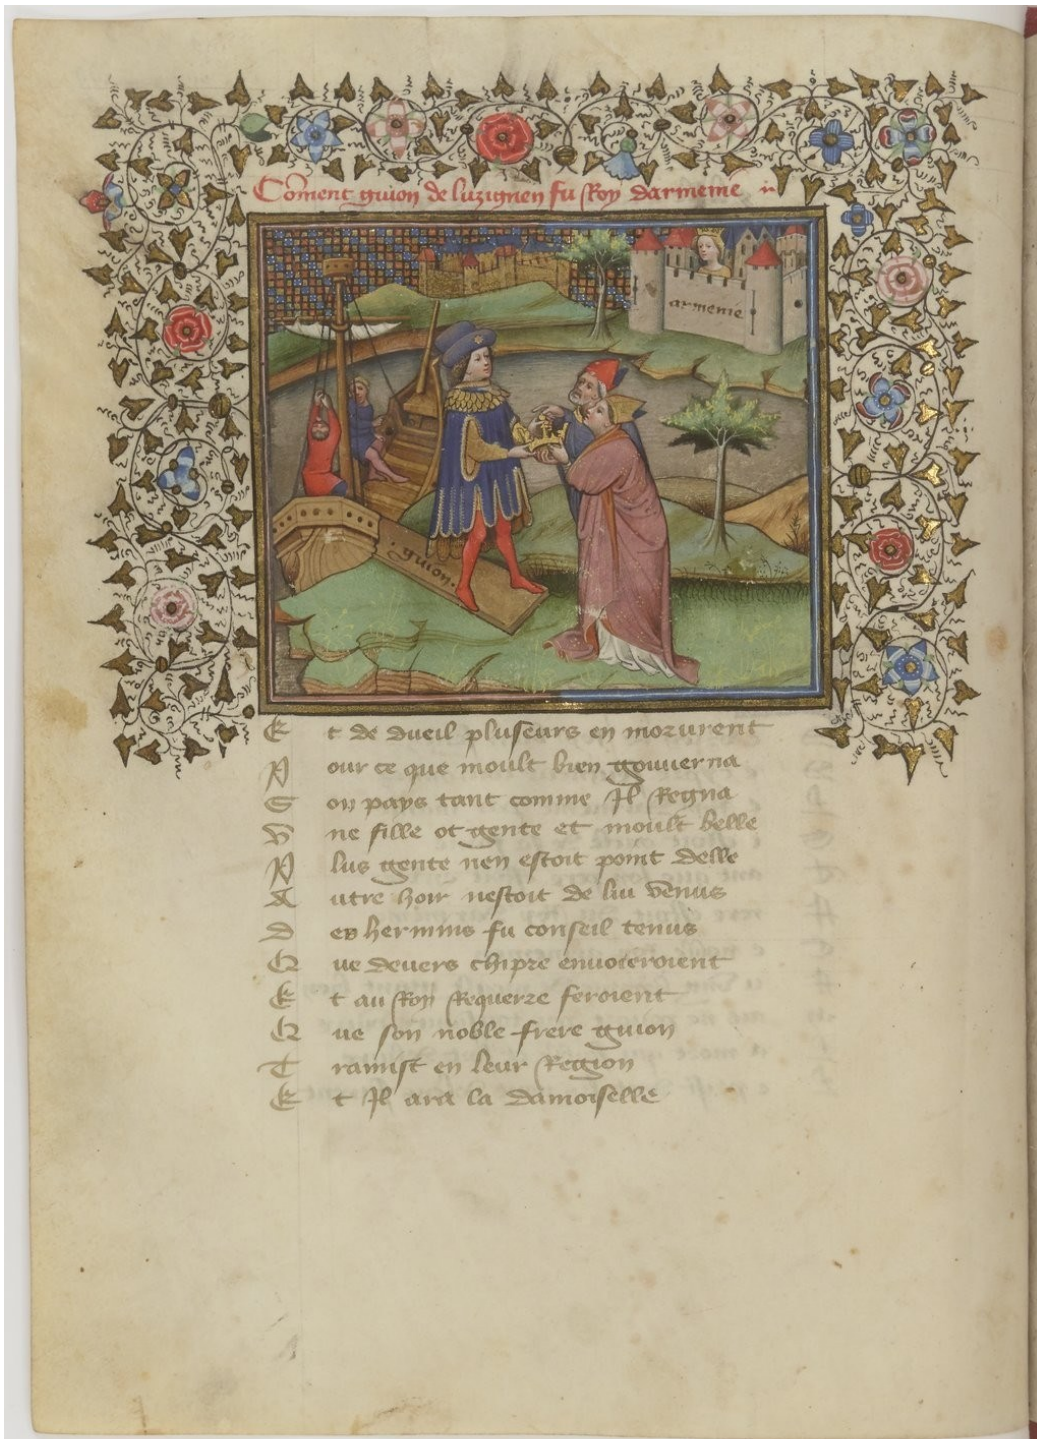 Co͞ment guion de luzignen fu Roy darmenie
armenie
guion.
Et de dueil pluseurs en morurent
Pour ce que moult bien gouuerna
Son pays tant comme Il Regna
Vne fille ot gente et moult belle
Plus gente nen estoit point delle
Autre hoir nestoit de lui venus
Des hermins fu conseil tenus
Que deuers chipre enuoieroient
Et au Roy Requerre feroient
Que son noble frere guion
Tramist en leur Region
Et Il ara la damoiselle